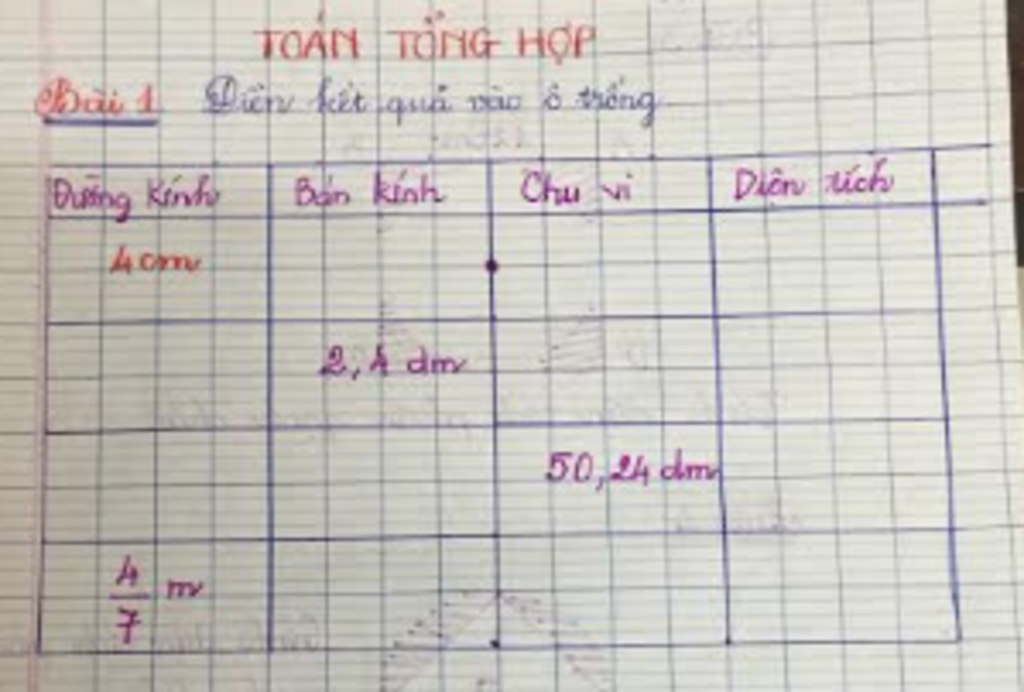 TOÁN TỔNG HỢP
Bài 1 Điền kết quả vào ô trống
Đường kính Bán kính Chu vi Diện tích
4cm
2,4 dm
50,24 dm
4/7 m